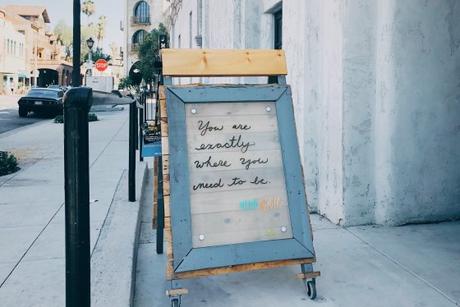 STOP
You are
exactly
where you
need to be.